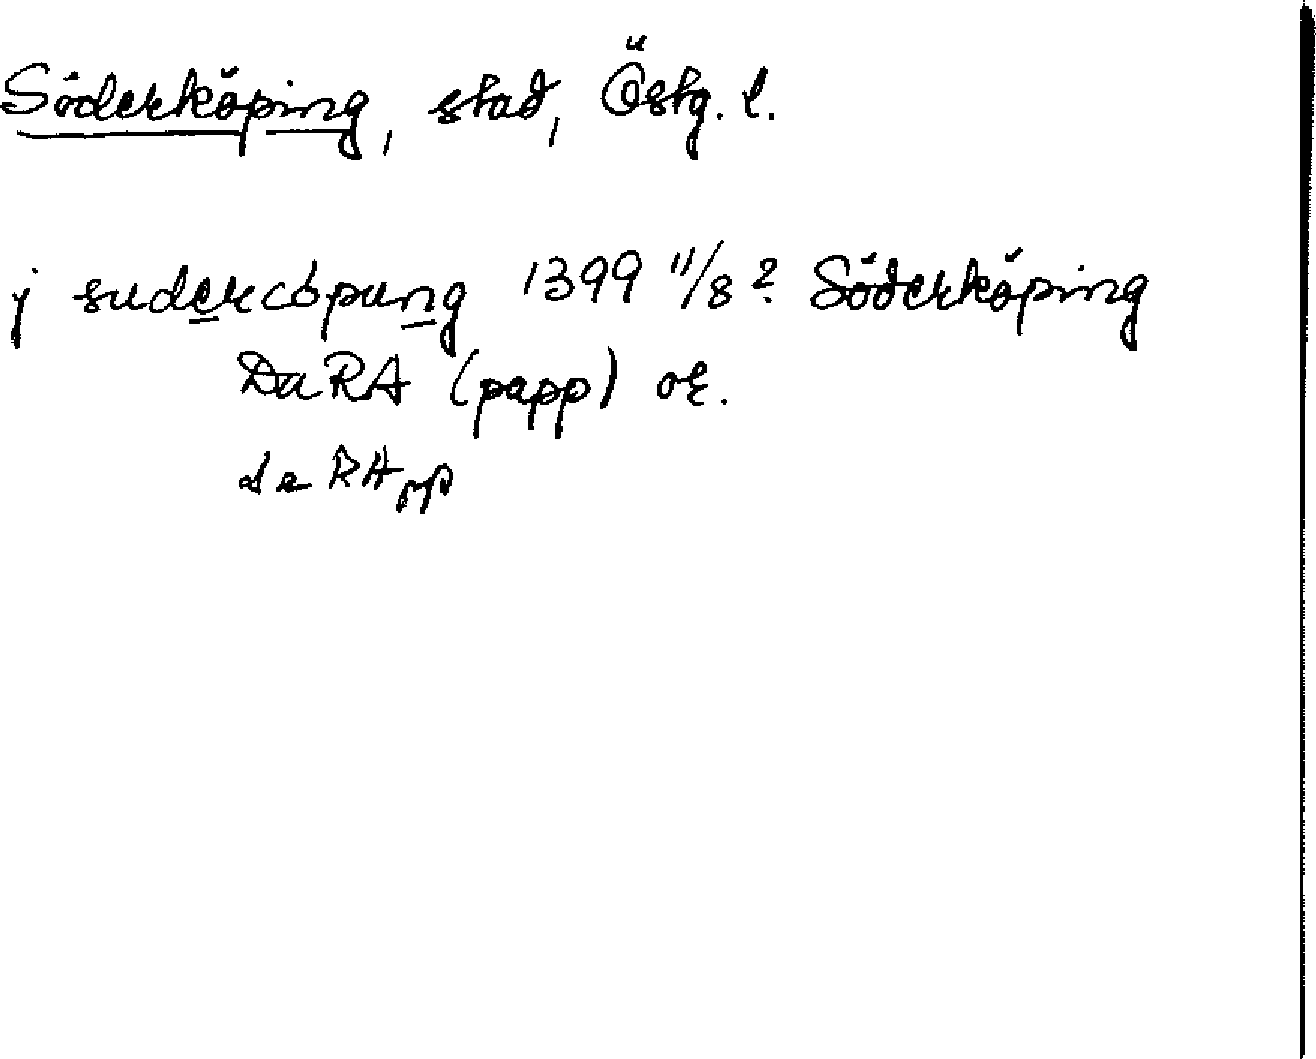 Söderköping, stad, Östg. l.
j sudercøpung 1399 11/8? Söderköping
DaRA (papp) or.
da RA pp